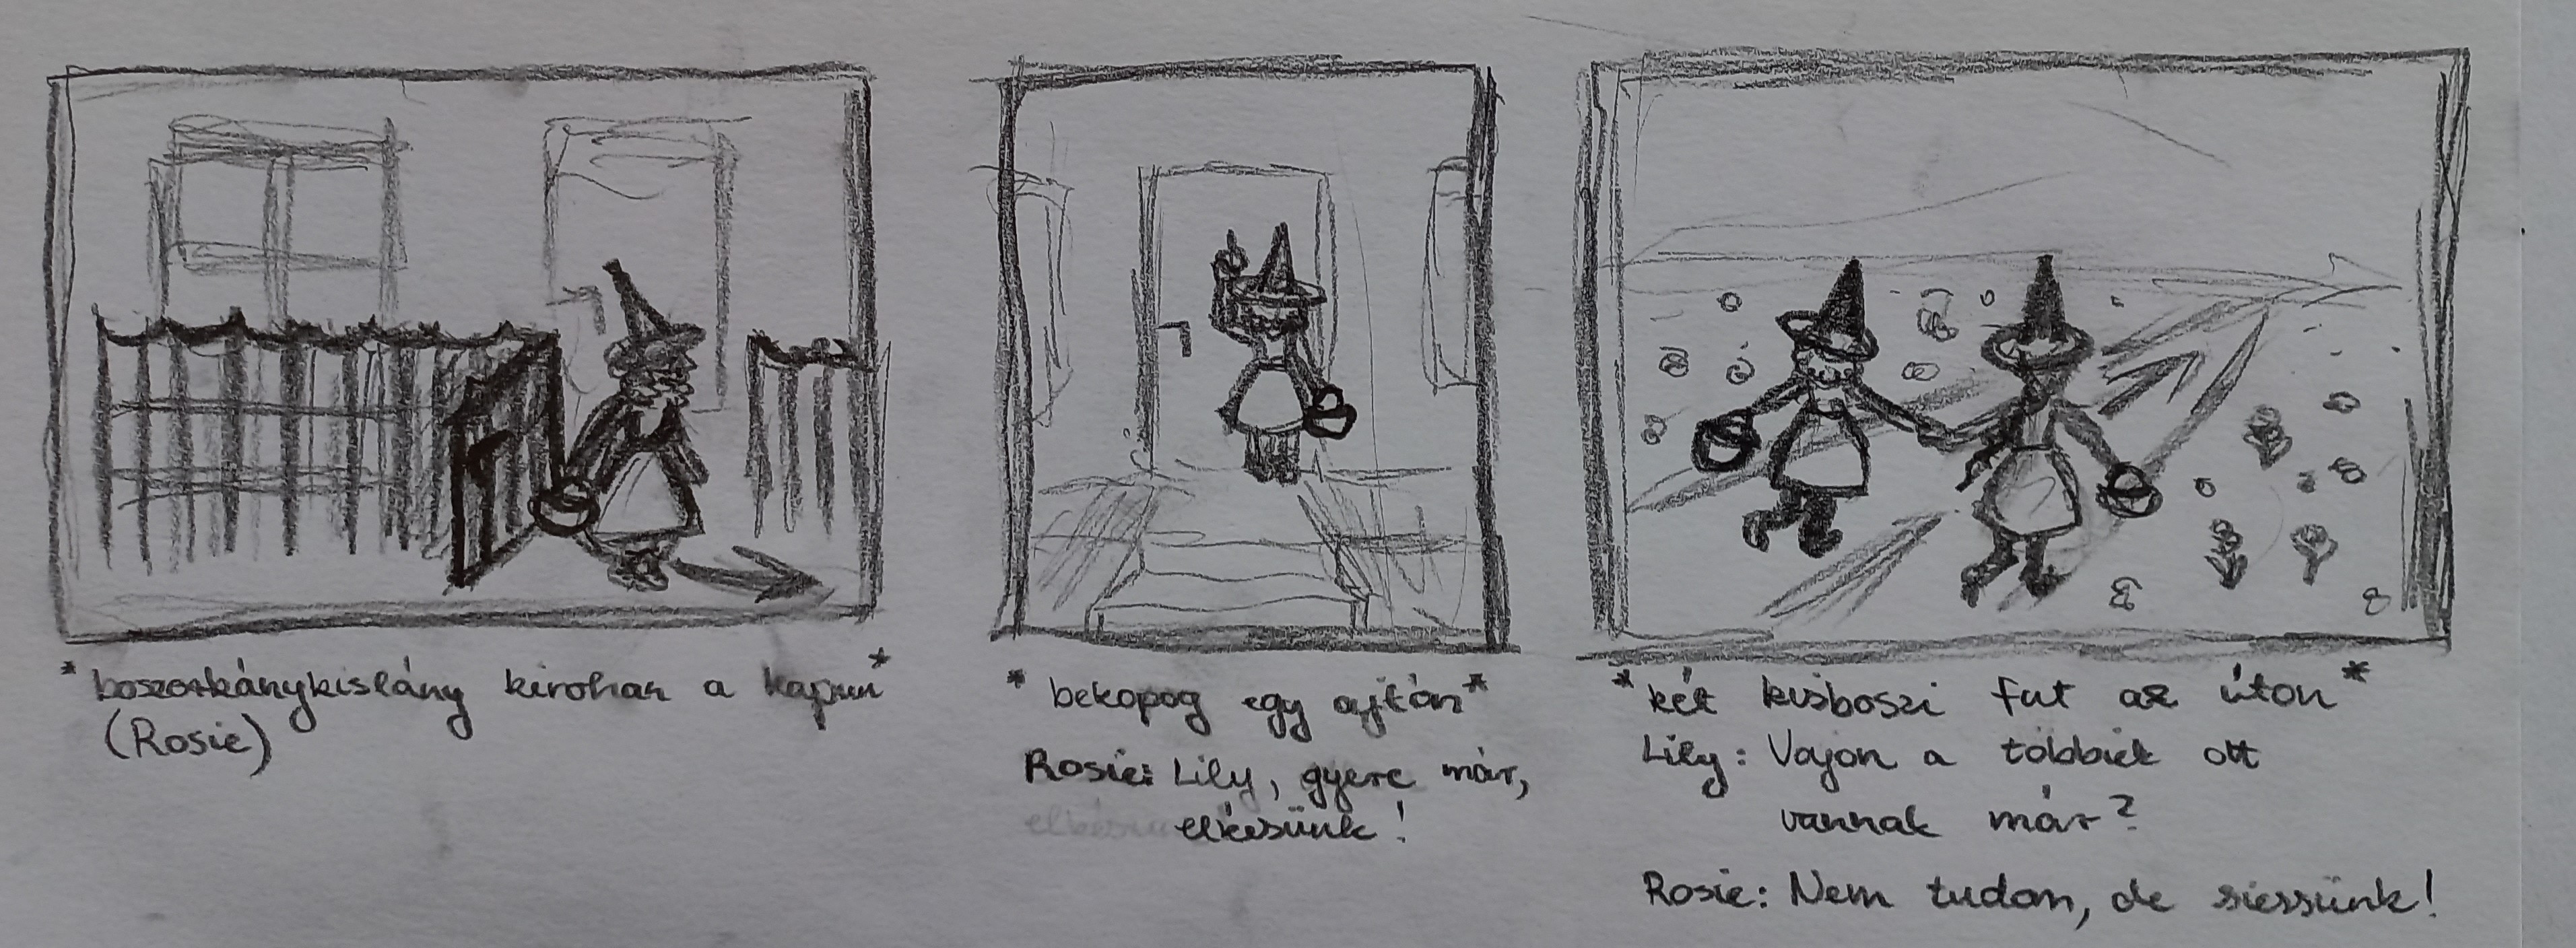 *boszorkánykislány kirohan a kapun*
(Rosie)
*bekopog egy ajtón*
Rosie: Lily, gyere már,
elkésünk!
*két kisboszi fut az úton*
Lily: Vajon a többiek ott
vannak már?
Rosie: Nem tudom, de siessünk!